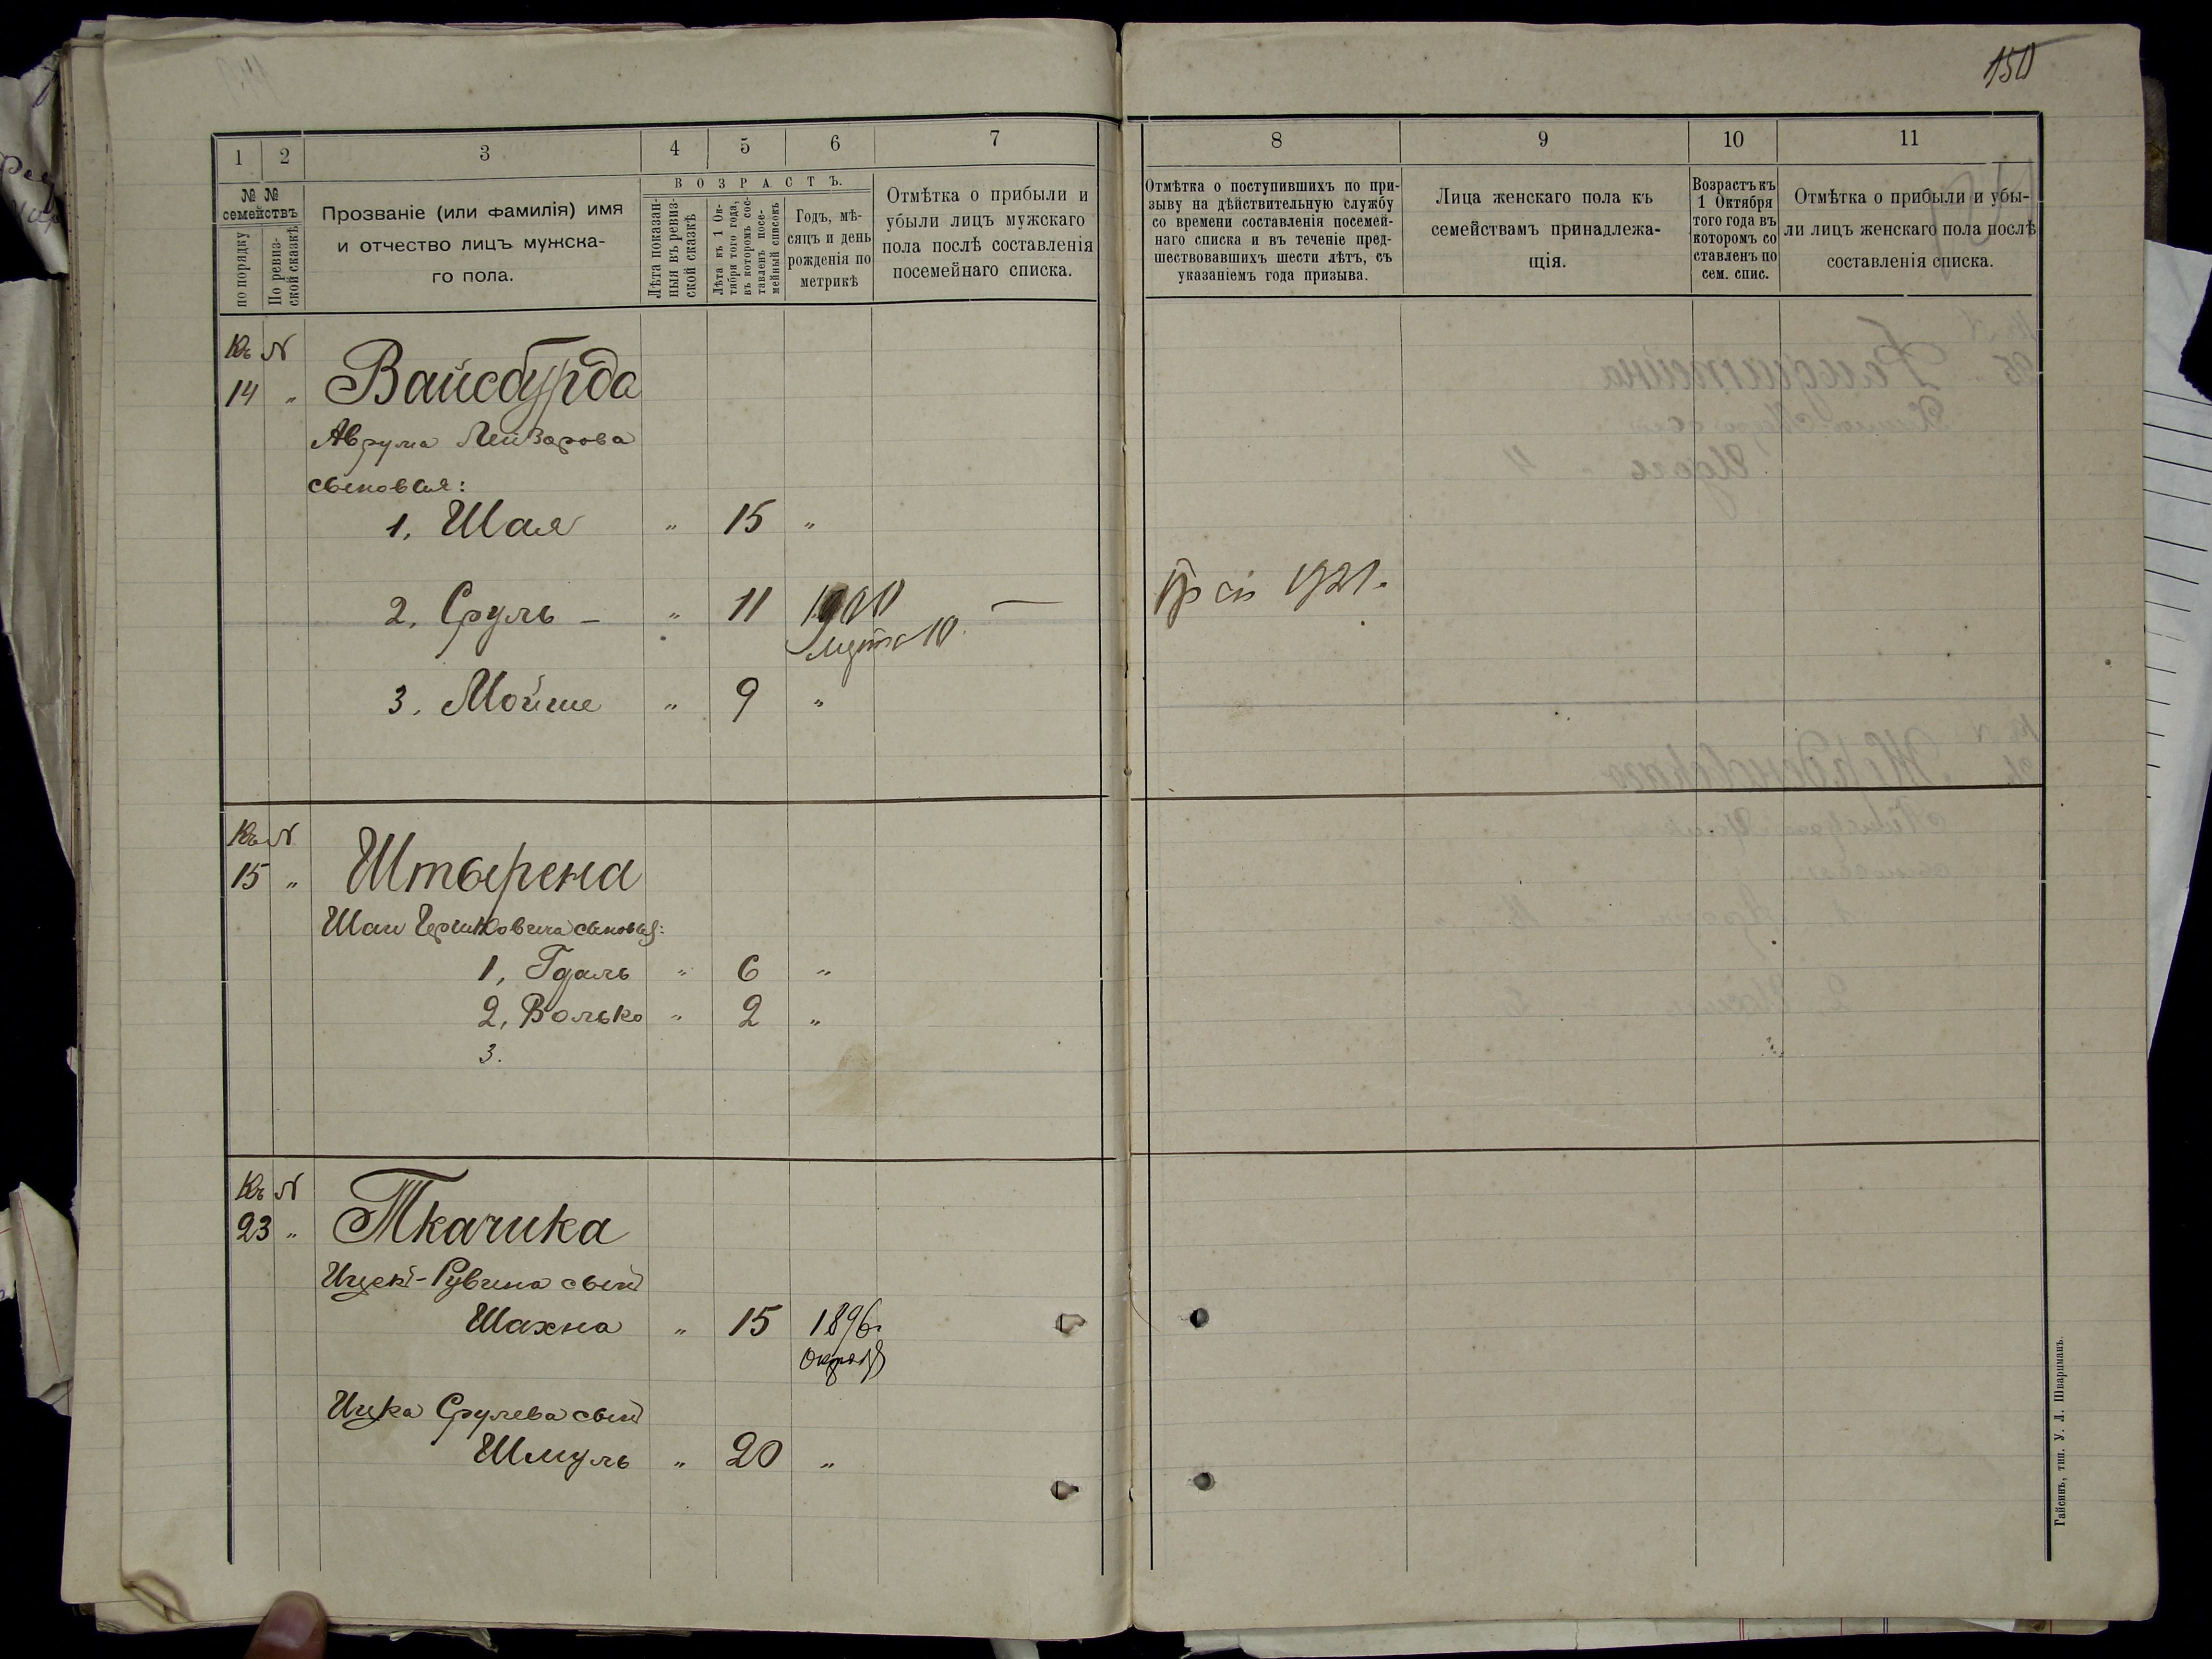 150
1 2 3 4 5 6 7
№ № семействъ
по порядку
По ревизской сказкѣ
Прозваніе (или фамилія) имя
и отчество лицъ мужска-
го пола.
ВОЗРАСТЪ.
Лѣта показан-
ныя въ ревиз-
ской сказкѣ
Лѣта къ 1 Ок-
тября того года,
въ которомъ сос-
тавленъ посе-
мейный списокъ
Годъ, мѣ-
сяцъ и день
рожденія по
метрикѣ
Отмѣтка о прибыли и
убыли лицъ мужскаго
пола послѣ составленія
посемейнаго списка.
8 9 10 11
Отмѣтка о поступившихъ по при-
зыву на дѣйствительную службу
со времени составленія посемей-
наго списка и въ теченіе пред-
шествовавшихъ шести лѣтъ, съ
указаніемъ года призыва.
Лица женскаго пола къ
семействамъ принадлежа-
щія.
Возрастъ къ
1 Октября
того года въ
которомъ со
ставленъ по
сем. спис.
Отмѣтка о прибыли и убы-
ли лицъ женскаго пола послѣ
составленія списка.
Къ N
14 „ Вайсбурда
Аврума Лейзарова
сыновья:
1. Шая „ 15 „
2. Сруль – „ 11 10 — 1921.
3. Мойше „ 9 „
Къ N
15 „ Штырена
Шаи Гершковича сыновья:
1, Гдаль „ 6 „
2, Волько „ 2 „
3.
Къ N
23 „ Ткачика
Ицек-Рувина сынъ
Шахна „ 15 1896
Ицка Срулева сынъ
Шмуль „ 20 „
Гайсинъ, тип. У. Л. Шварцманъ.